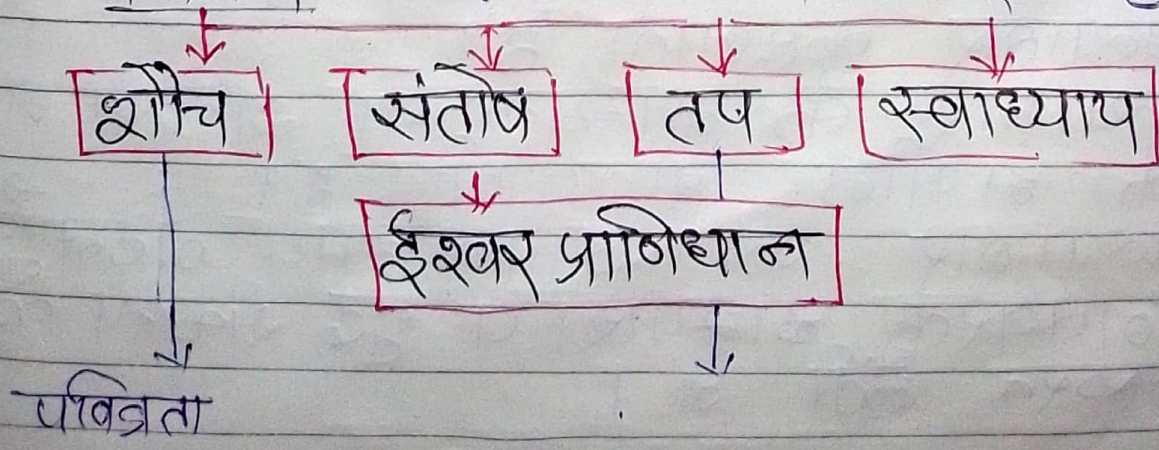 शौच संतोष तप स्वाध्याय
ईश्वर प्राणिधान
पवित्रता